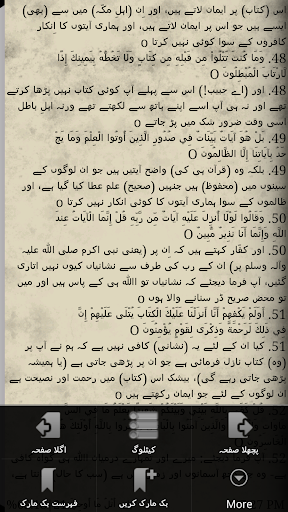 اس (کتاب) پر ایمان لاتے ہیں، اور اِن (اہلِ مکّہ) میں سے (بھی)
ایسے ہیں جو اس پر ایمان لاتے ہیں، اور ہماری آیتوں کا انکار
کافروں کے سوا کوئی نہیں کرتا o
48. وَمَا كُنتَ تَتْلُواْ مِن قَبْلِهِ مِن كِتَابٍ وَلَا تَخُطُّهُ بِيَمِينِكَ إِذًا
لَّارْتَابَ الْمُبْطِلُونَ o
48. اور (اے حبیب!) اس سے پہلے آپ کوئی کتاب نہیں پڑھا کرتے
تھے اور نہ ہی آپ اسے اپنے ہاتھ سے لکھتے تھے ورنہ اہلِ باطل
اسی وقت ضرور شک میں پڑ جاتے o
49. بَلْ هُوَ آيَاتٌ بَيِّنَاتٌ فِي صُدُورِ الَّذِينَ أُوتُوا الْعِلْمَ وَمَا يَجْحَدُ
بِآيَاتِنَا إِلَّا الظَّالِمُونَ o
49. بلکہ وہ (قرآن ہی کی) واضح آیتیں ہیں جو ان لوگوں کے
سینوں میں (محفوظ) ہیں جنہیں (صحیح) علم عطا کیا گیا ہے، اور
ظالموں کے سوا ہماری آیتوں کا کوئی انکار نہیں کرتا o
50. وَقَالُوا لَوْلَا أُنزِلَ عَلَيْهِ آيَاتٌ مِّن رَّبِّهِ قُلْ إِنَّمَا الْآيَاتُ عِندَ
اللَّهِ وَإِنَّمَا أَنَا نَذِيرٌ مُّبِينٌ o
50. اور کفّار کہتے ہیں کہ اِن پر (یعنی نبی اکرم صلی اللہ علیہ
وآلہ وسلم پر) ان کے رب کی طرف سے نشانیاں کیوں نہیں اتاری
گئیں، آپ فرما دیجئے کہ نشانیاں تو اﷲ ہی کے پاس ہیں اور میں
تو محض صریح ڈر سنانے والا ہوں o
51. أَوَلَمْ يَكْفِهِمْ أَنَّا أَنزَلْنَا عَلَيْكَ الْكِتَابَ يُتْلَى عَلَيْهِمْ إِنَّ
فِي ذَلِكَ لَرَحْمَةً وَذِكْرَى لِقَوْمٍ يُؤْمِنُونَ o
51. کیا ان کے لئے یہ (نشانی) کافی نہیں ہے کہ ہم نے آپ پر
(وہ) کتاب نازل فرمائی ہے جو ان پر پڑھی جاتی ہے (یا ہمیشہ
پڑھی جاتی رہے گی)، بیشک اس (کتاب) میں رحمت اور نصیحت ہے
ان لوگوں کے لئے جو ایمان رکھتے ہیں o
پچھلا صفحہ
کیٹلوگ
اگلا صفحہ
More
بک مارک کریں
فہرست بک مارک